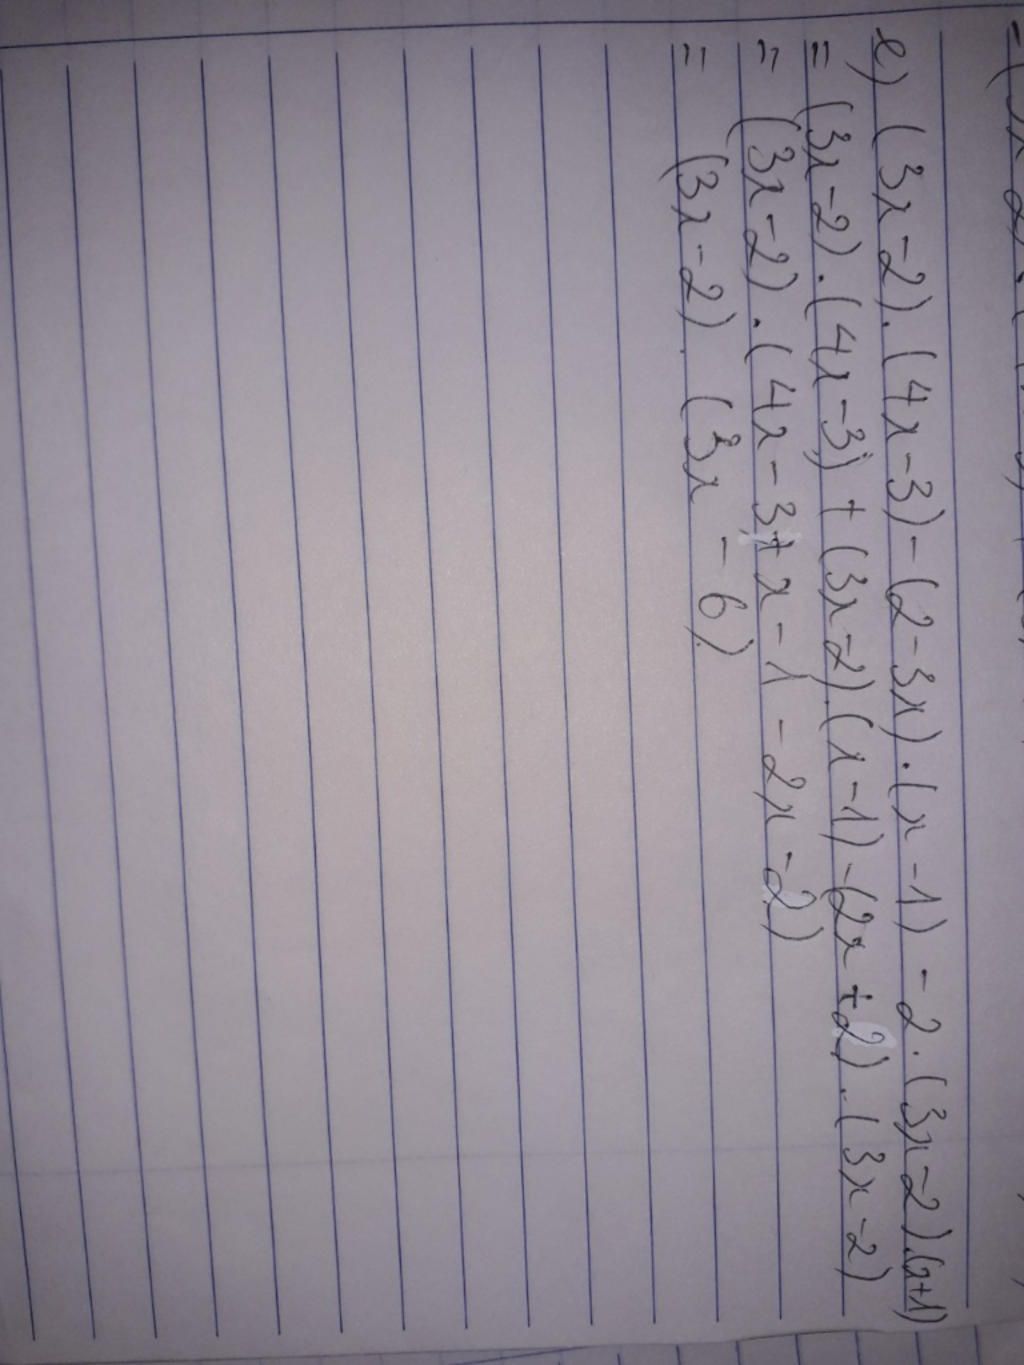 e) (3x-2).(4x-3)-(2-3x).(x-1) -2.(3x-2).(x+1)
= (3x-2).(4x-3)+(3x-2).(x-1)-(2x+2).(3x-2)
= (3x-2).(4x-3+x-1-2x-2)
= (3x-2).(3x-6)